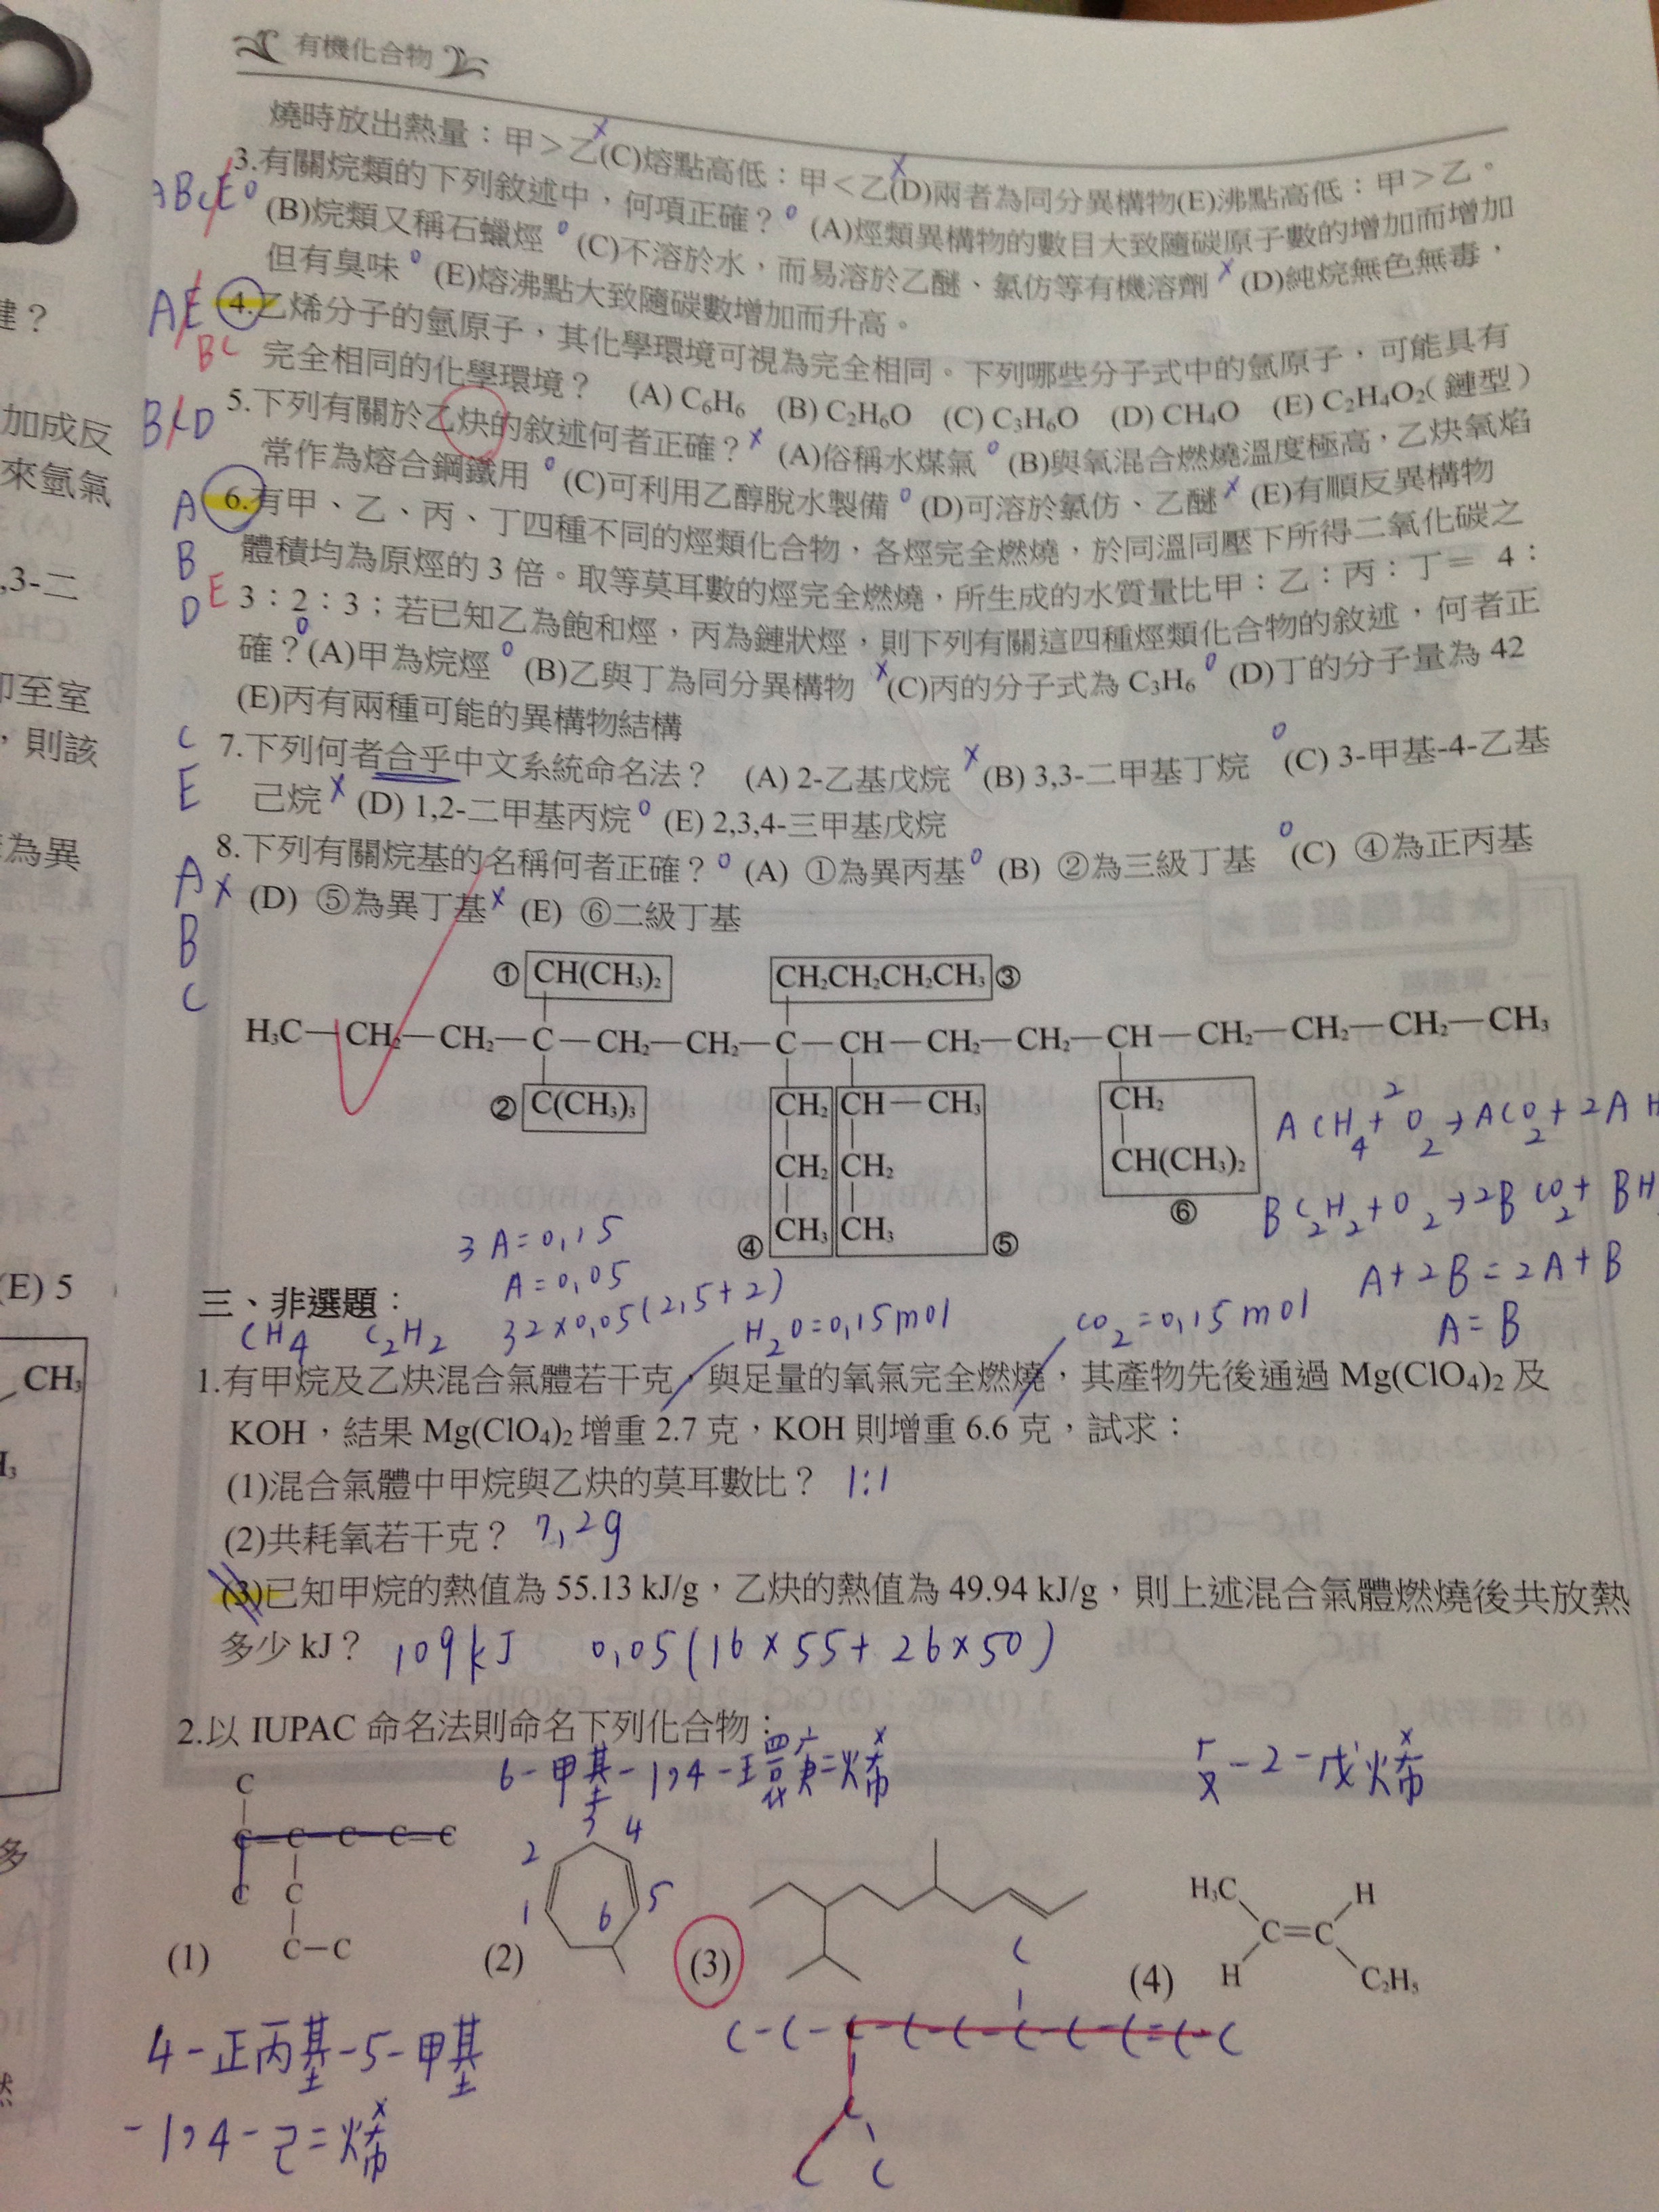 有機化合物
燒時放出熱量：甲＞乙(C)熔點高低：甲＜乙(D)兩者為同分異構物(E)沸點高低：甲＞乙。
3.有關烷類的下列敘述中，何項正確？ (A)烴類異構物的數目大致隨碳原子數的增加而增加
(B)烷類又稱石蠟烴 (C)不溶於水，而易溶於乙醚、氯仿等有機溶劑 (D)純烷無色無毒，
但有臭味 (E)熔沸點大致隨碳數增加而升高。
4.乙烯分子的氫原子，其化學環境可視為完全相同。下列哪些分子式中的氫原子，可能具有
完全相同的化學環境？ (A) C₆H₆ (B) C₂H₆O (C) C₃H₆O (D) CH₄O (E) C₂H₄O₂(鏈型)
5.下列有關於乙炔的敘述何者正確？ (A)俗稱水煤氣 (B)與氧混合燃燒溫度極高，乙炔氧焰
常作為熔合鋼鐵用 (C)可利用乙醇脫水製備 (D)可溶於氯仿、乙醚 (E)有順反異構物
6.有甲、乙、丙、丁四種不同的烴類化合物，各烴完全燃燒，於同溫同壓下所得二氧化碳之
體積均為原烴的 3 倍。取等莫耳數的烴完全燃燒，所生成的水質量比甲：乙：丙：丁＝ 4：
3：2：3；若已知乙為飽和烴，丙為鏈狀烴，則下列有關這四種烴類化合物的敘述，何者正
確？(A)甲為烷烴 (B)乙與丁為同分異構物 (C)丙的分子式為 C₃H₆ (D)丁的分子量為 42
(E)丙有兩種可能的異構物結構
7.下列何者合乎中文系統命名法？ (A) 2-乙基戊烷 (B) 3,3-二甲基丁烷 (C) 3-甲基-4-乙基
己烷 (D) 1,2-二甲基丙烷 (E) 2,3,4-三甲基戊烷
8.下列有關烷基的名稱何者正確？ (A) ①為異丙基 (B) ②為三級丁基 (C) ④為正丙基
(D) ⑤為異丁基 (E) ⑥二級丁基
① CH(CH₃)₂ CH₂CH₂CH₂CH₃ ③
H₃C—CH₂—CH₂—C—CH₂—CH₂—C—CH—CH₂—CH₂—CH—CH₂—CH₂—CH₂—CH₃
② C(CH₃)₃ CH₂ CH—CH₃ CH₂
CH₂ CH₂ CH(CH₃)₂
④ CH₃ CH₃ ⑤ ⑥
ACH₄+2O₂→ACO₂+2AH
BC₂H₂+O₂→2BCO₂+BH
A+2B=2A+B
A=B
3A=0,15
A=0,05
32×0,05(2,5+2)
三、非選題：
CH₄ C₂H₂ H₂O=0,15mol CO₂=0,15mol
1.有甲烷及乙炔混合氣體若干克，與足量的氧氣完全燃燒，其產物先後通過 Mg(ClO₄)₂ 及
KOH，結果 Mg(ClO₄)₂ 增重 2.7 克，KOH 則增重 6.6 克，試求：
(1)混合氣體中甲烷與乙炔的莫耳數比？ 1:1
(2)共耗氧若干克？ 7,2g
(3)已知甲烷的熱值為 55.13 kJ/g，乙炔的熱值為 49.94 kJ/g，則上述混合氣體燃燒後共放熱
多少 kJ？ 109kJ 0,05(16×55+26×50)
2.以 IUPAC 命名法則命名下列化合物：
6-甲基-1,4-環庚二烯 反-2-戊烯
C
C=C-C-C=C
C C
C-C
(1)
1 2 3 4 5 6
(2)
(3)
H₃C H
C=C
H C₂H₅
(4)
C
C-C-C-C-C-C-C-C=C-C
C
C C
4-正丙基-5-甲基
-1,4-己二烯
ABCE
AE
BC
BCD
A
B
D E
C
E
A
B
C
建？
加成反
來氫氣
,3-二
卻至室
，則該
為異
(E) 5
CH₃
H₃
多
然